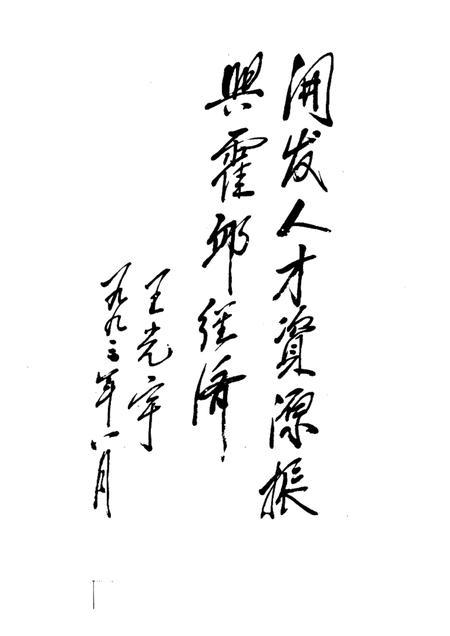 開发人才資源振
興霍邱经济
王光宇
一九九三年八月